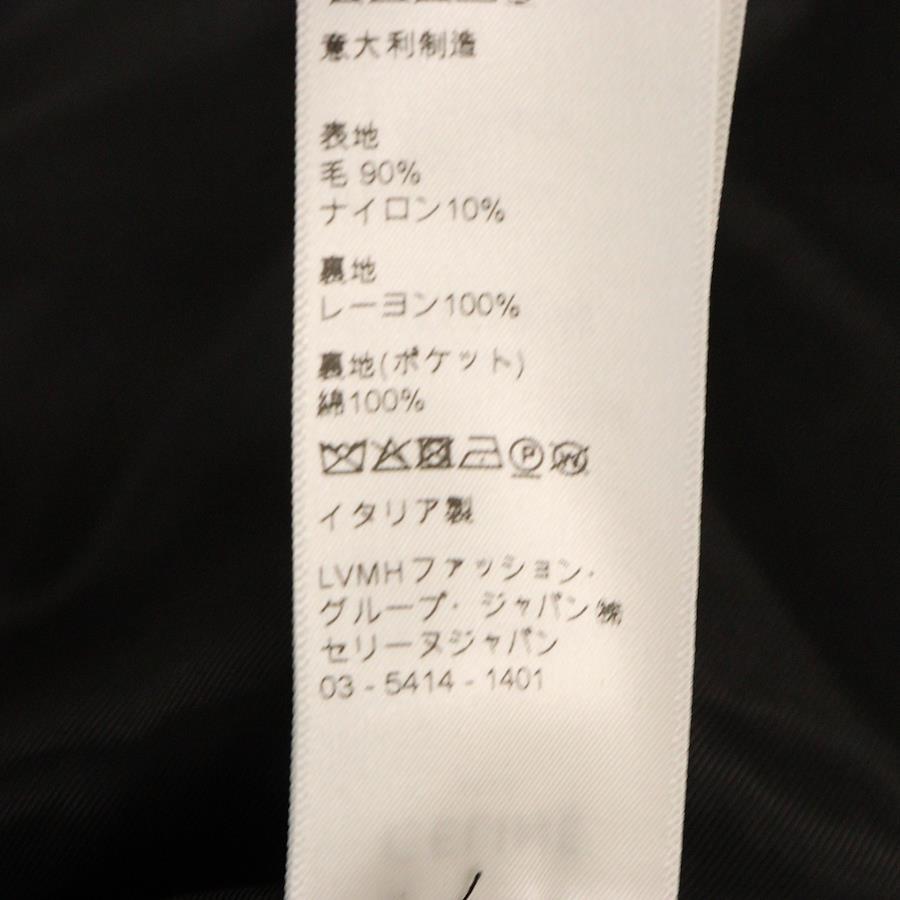 意大利制造
表地
毛 90%
ナイロン10%
裏地
レーヨン100%
裏地(ポケット)
綿100%
イタリア製
LVMHファッション・
グループ・ ジャパン㈱
セリーヌジャパン
03 - 5414 - 1401